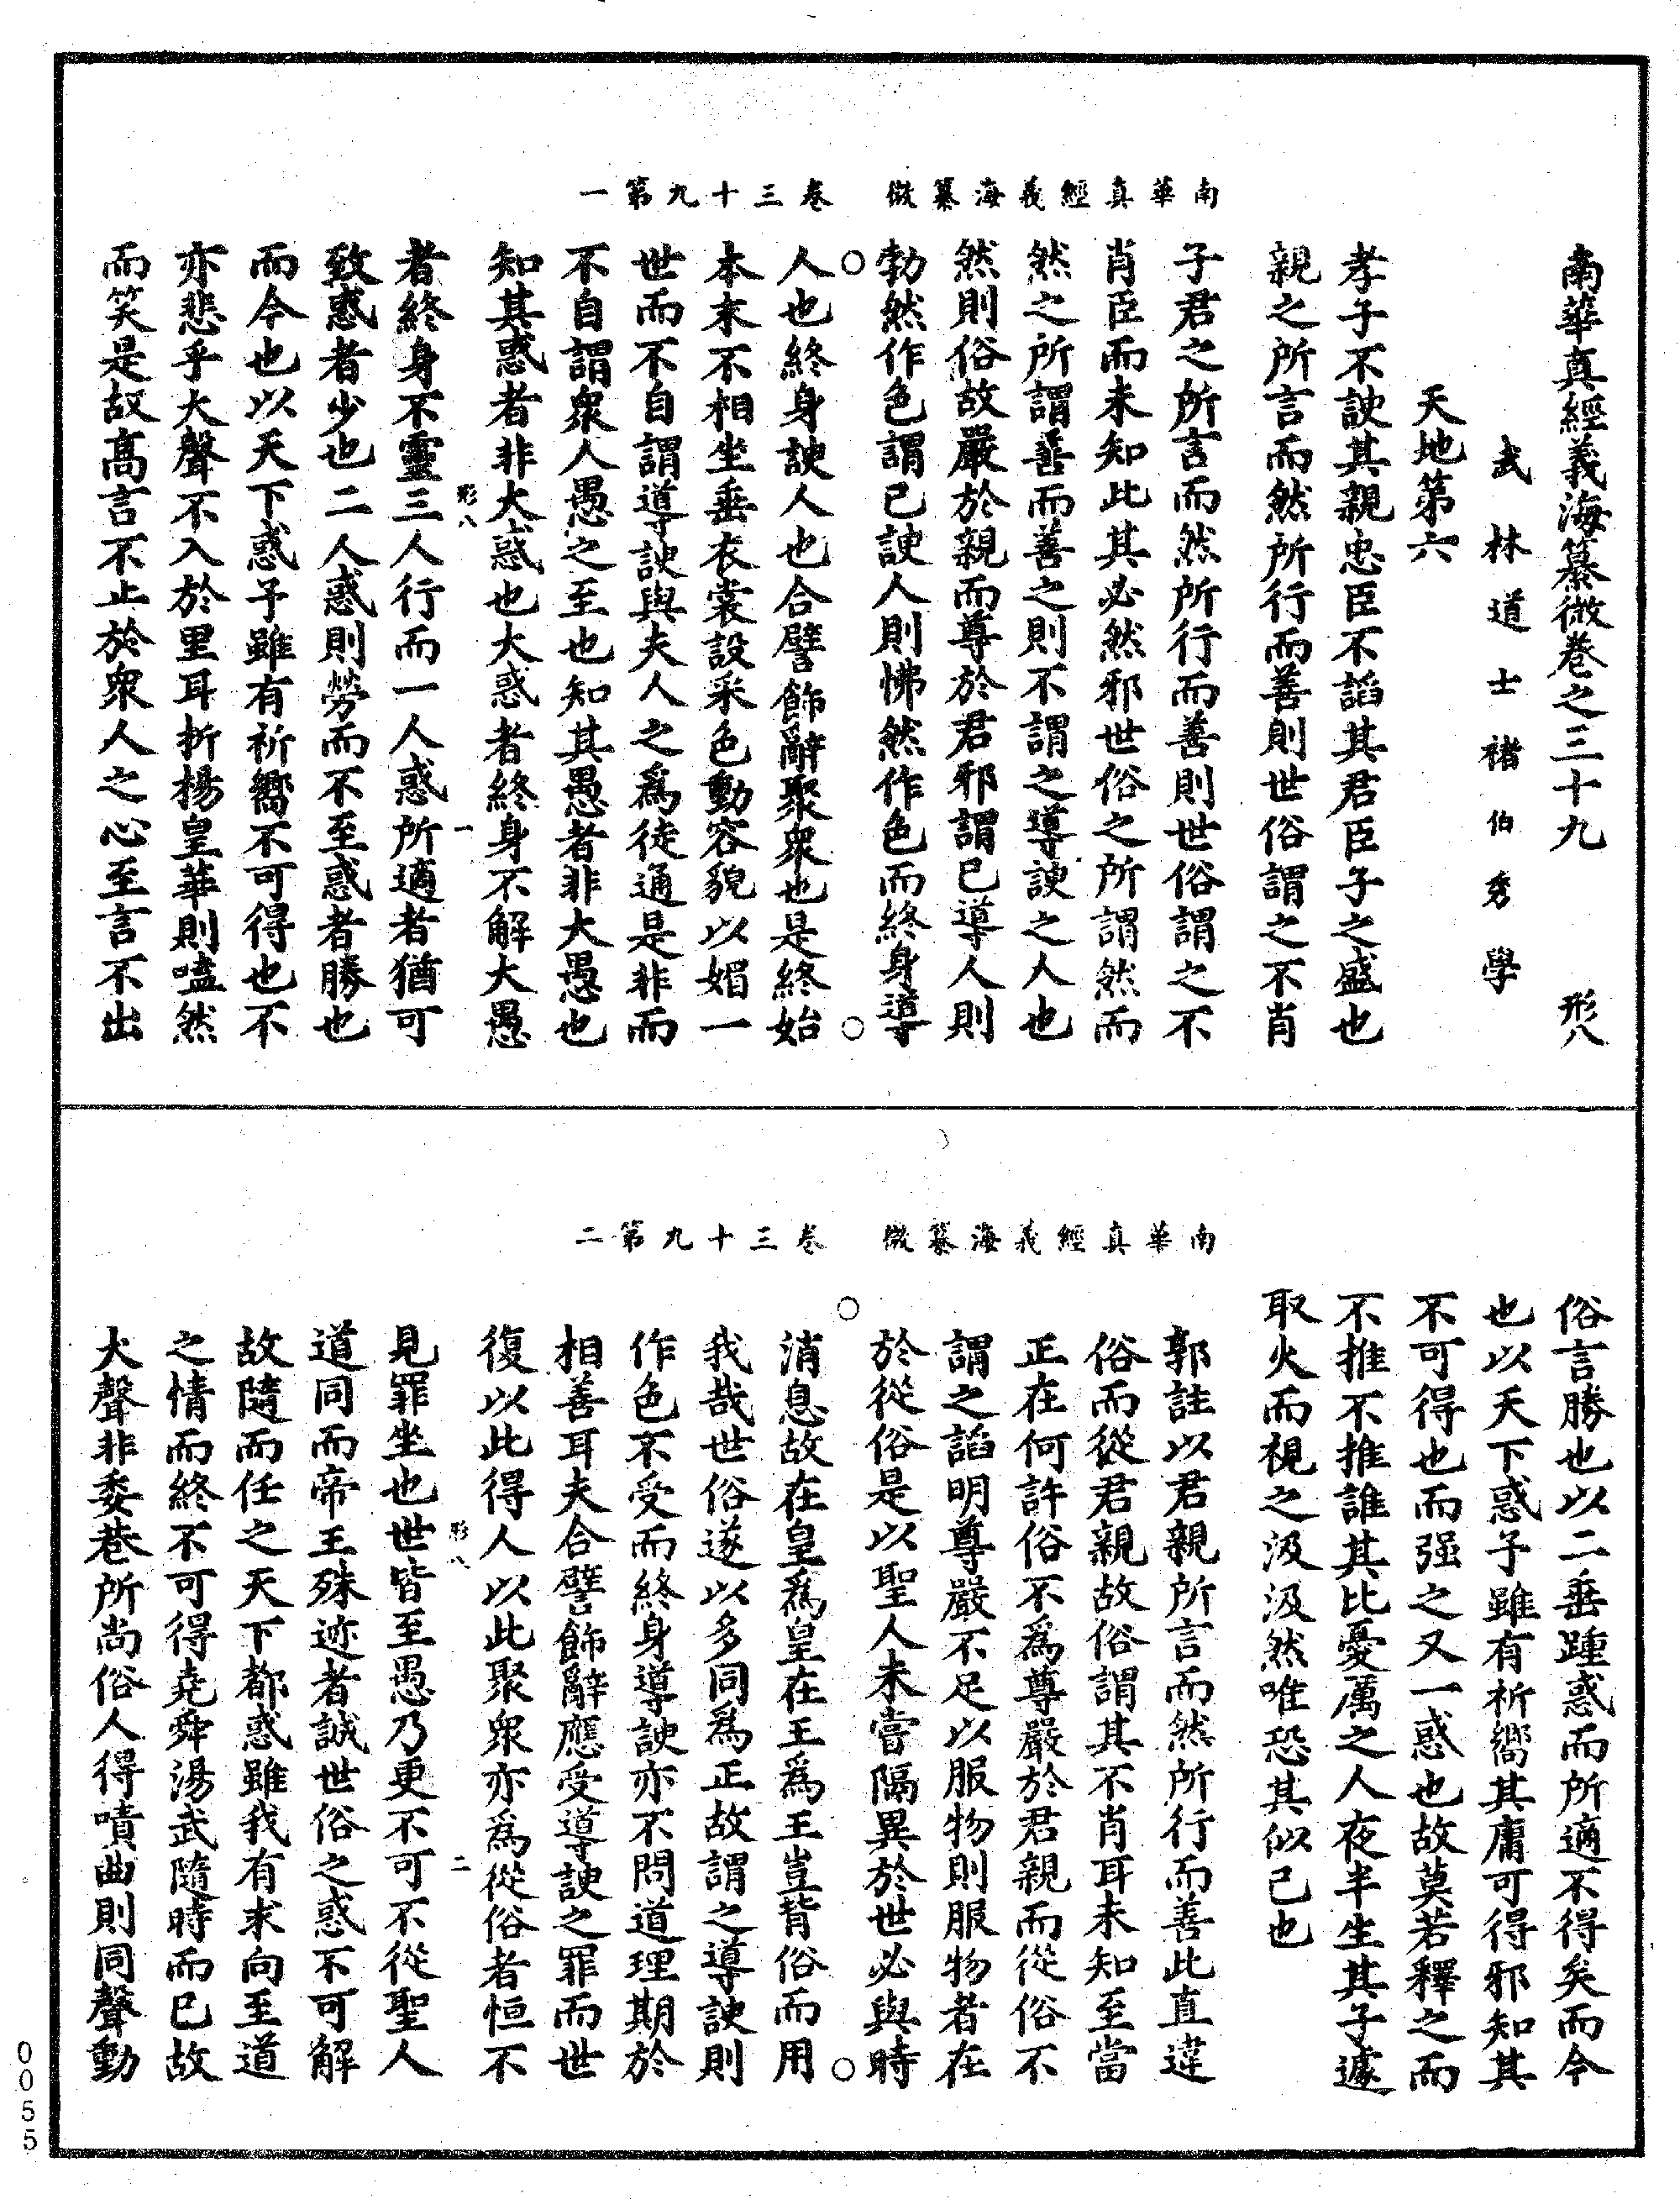 南華真經義海纂微卷之三十九 形八
武林道士褚伯秀學
天地第六
孝子不諛其親忠臣不諂其君臣子之盛也
親之所言而然所行而善則世俗謂之不肖
子君之所言而然所行而善則世俗謂之不
肖臣而未知此其必然邪世俗之所謂然而
然之所謂善而善之則不謂之導諛之人也
然則俗故嚴於親而尊於君邪謂已導人則
勃然作色謂已諛人則怫然作色而終身導
南華真經義海纂微 卷三十九第一
人也終身諛人也合譬飾辭聚衆也是終始
本末不相坐垂衣裳設采色動容貌以媚一
世而不自謂導諛與夫人之爲徒通是非而
不自謂衆人愚之至也知其愚者非大愚也
知其惑者非大惑也大惑者終身不解大愚
形八 一
者終身不靈三人行而一人惑所適者猶可
致惑者少也二人惑則勞而不至惑者勝也
而今也以天下惑予雖有祈嚮不可得也不
亦悲乎大聲不入於里耳折揚皇華則嗑然
而笑是故高言不止於衆人之心至言不出
俗言勝也以二垂踵惑而所適不得矣而今
也以天下惑予雖有祈嚮其庸可得邪知其
不可得也而强之又一惑也故莫若釋之而
不推不推誰其比憂厲之人夜半生其子遽
取火而視之汲汲然唯恐其似己也
郭註以君親所言而然所行而善此直違
俗而從君親故俗謂其不肖耳未知至當
正在何許俗不爲尊嚴於君親而從俗不
謂之諂明尊嚴不足以服物則服物者在
於從俗是以聖人未嘗隔異於世必與時
南華真經義海纂微 卷三十九第二
消息故在皇爲皇在王爲王豈背俗而用
我哉世俗遂以多同爲正故謂之導諛則
作色不受而終身導諛亦不問道理期於
相善耳夫合譬飾辭應受導諛之罪而世
復以此得人以此聚衆亦爲從俗者恒不
形八 二
見罪坐也世皆至愚乃更不可不從聖人
道同而帝王殊迹者誠世俗之惑不可解
故隨而任之天下都惑雖我有求向至道
之情而終不可得堯舜湯武隨時而已故
大聲非委巷所尚俗人得嘖曲則同聲動
0055